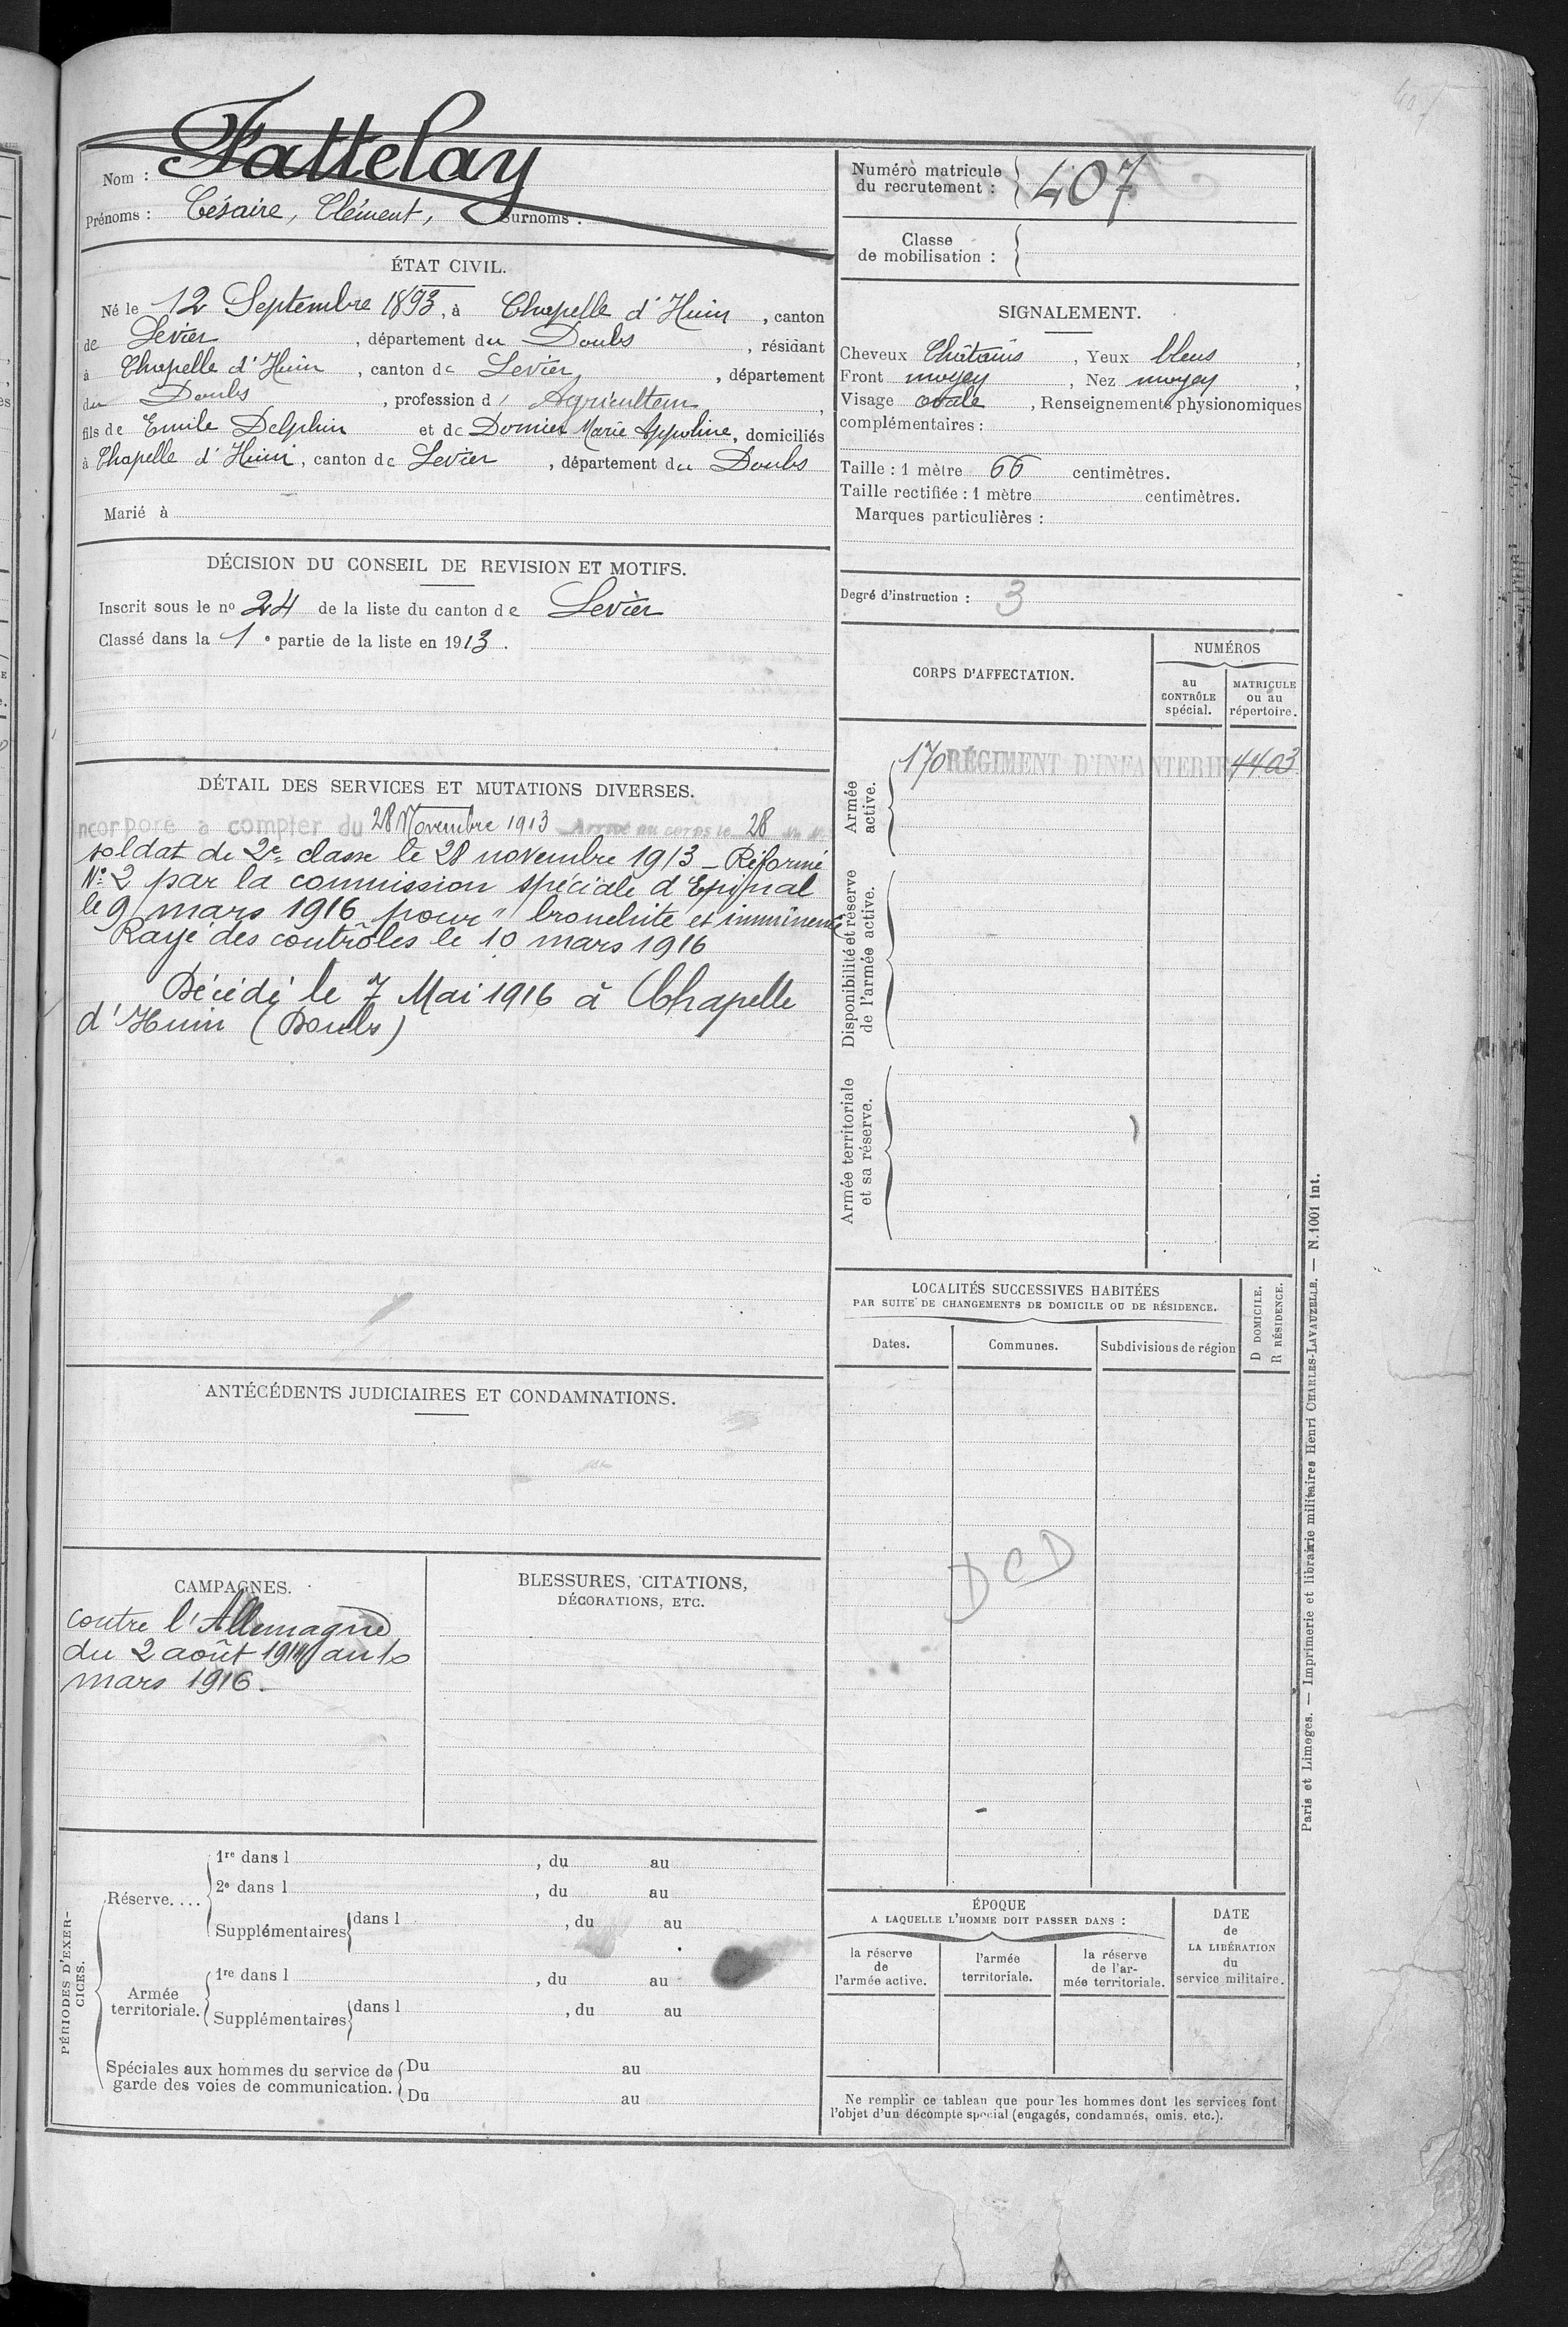 Nom : Fattelay
Prénoms : Césaire, Clément, Surnoms :
ÉTAT CIVIL.
Né le 12 Septembre 1893, à Chapelle d'Huin, canton
de Levier, département du Doubs, résidant
à Chapelle d'Huin, canton de Levier, département
du Doubs, profession d' Agriculteur,
fils de Emile Delphin et de Dornier Marie Appoline, domiciliés
à Chapelle d'Huin, canton de Levier, département du Doubs
Marié à
DÉCISION DU CONSEIL DE REVISION ET MOTIFS.
Inscrit sous le nº 24 de la liste du canton de Levier
Classé dans la 1e partie de la liste en 1913.
DÉTAIL DES SERVICES ET MUTATIONS DIVERSES.
ncorporé à compter du 28 Novembre 1913 Arrivé au corps le 28
soldat de 2e classe le 28 novembre 1913 – Réformé
Nº 2 par la commission spéciale d'Epinal
le 9 mars 1916 pour "bronchite et imminence
Rayé des contrôles le 10 mars 1916
Décédé le 7 Mai 1916 à Chapelle
d'Huin (Doubs)
ANTÉCÉDENTS JUDICIAIRES ET CONDAMNATIONS.
CAMPAGNES.
contre l'Allemagne
du 2 août 1914 au 10
mars 1916.
BLESSURES, CITATIONS,
DÉCORATIONS, ETC.
PÉRIODES D'EXER-
CICES.
Réserve....
1re dans l , du au
2e dans l , du au
Supplémentaires dans l , du au
Armée
territoriale.
1re dans l , du au
Supplémentaires dans l , du au
Spéciales aux hommes du service de
garde des voies de communication.
Du au
Du au
Numéro matricule
du recrutement : 407
Classe
de mobilisation :
SIGNALEMENT.
Cheveux Châtains, Yeux bleus,
Front moyen, Nez moyen,
Visage ovale, Renseignements physionomiques
complémentaires :
Taille : 1 mètre 66 centimètres.
Taille rectifiée : 1 mètre centimètres.
Marques particulières :
Degré d'instruction : 3
CORPS D'AFFECTATION.
NUMÉROS
au
CONTRÔLE
spécial.
MATRICULE
ou au
répertoire.
Armée
active.
170 RÉGIMENT D'INFANTERIE 4403
Disponibilité et réserve
de l'armée active.
Armée territoriale
et sa réserve.
LOCALITÉS SUCCESSIVES HABITÉES
PAR SUITE DE CHANGEMENTS DE DOMICILE OU DE RÉSIDENCE.
Dates.
Communes.
Subdivisions de région
D DOMICILE.
R RÉSIDENCE.
DCD
ÉPOQUE
A LAQUELLE L'HOMME DOIT PASSER DANS :
la réserve
de
l'armée active.
l'armée
territoriale.
la réserve
de l'ar-
mée territoriale.
DATE
de
LA LIBÉRATION
du
service militaire.
Ne remplir ce tableau que pour les hommes dont les services font
l'objet d'un décompte spécial (engagés, condamnés, omis, etc.).
Paris et Limoges. — Imprimerie et librairie militaires Henri CHARLES-LAVAUZELLE. — N. 1001 int.